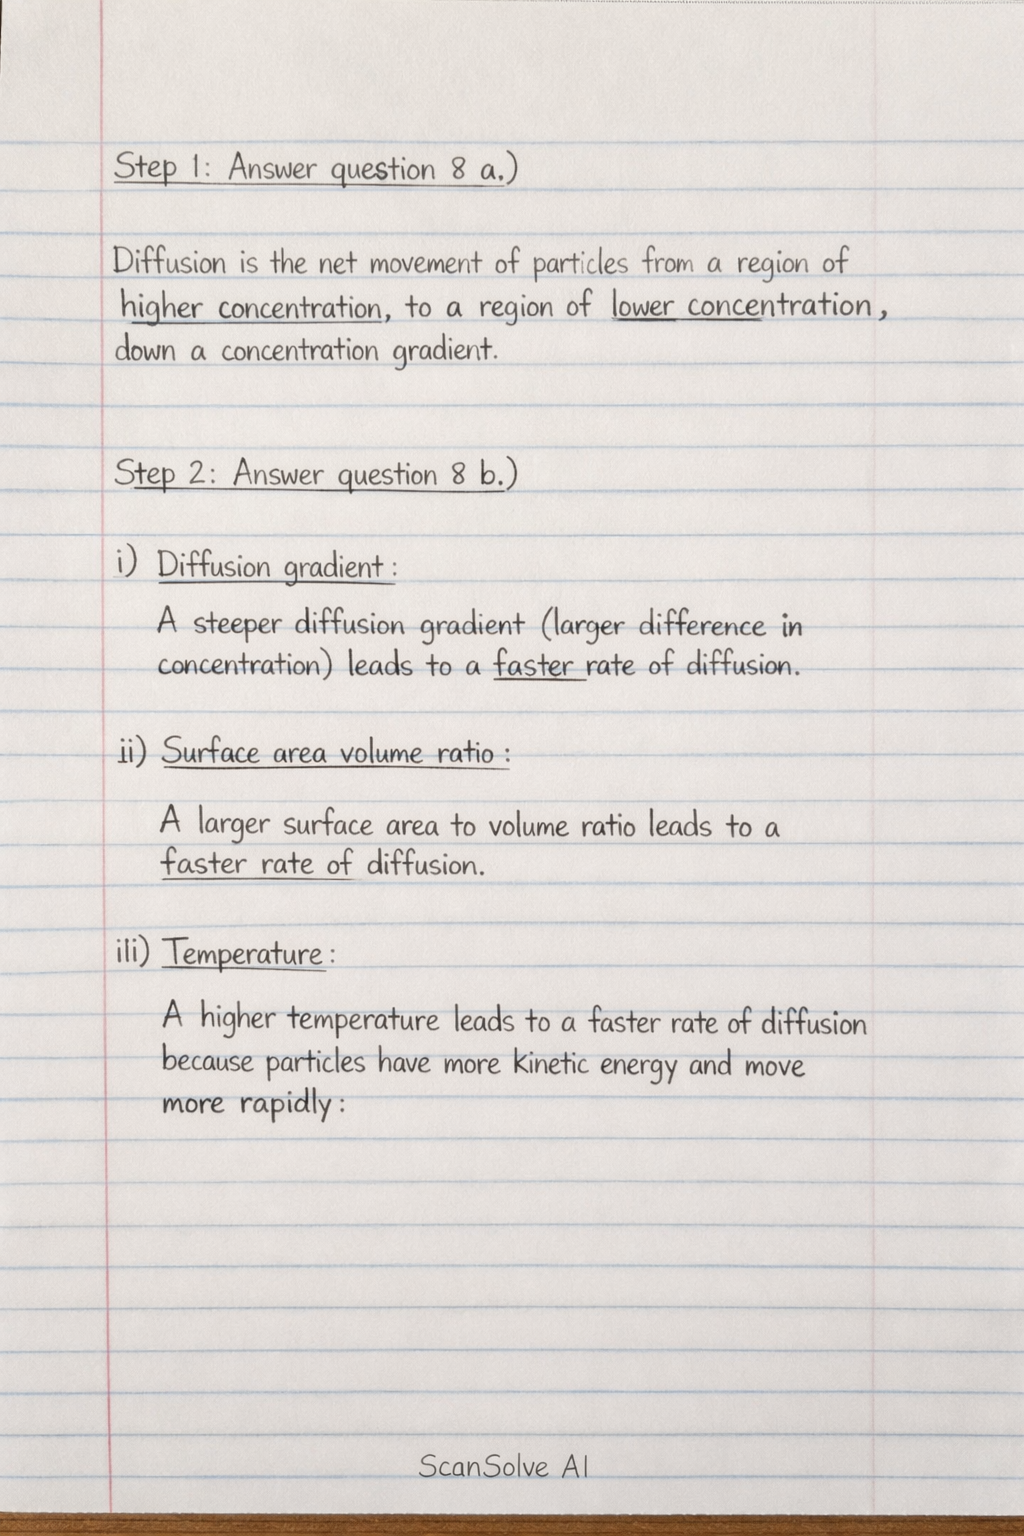 Step 1: Answer question 8 a.)
Diffusion is the net movement of particles from a region of
higher concentration, to a region of lower concentration,
down a concentration gradient.
Step 2: Answer question 8 b.)
i) Diffusion gradient:
A steeper diffusion gradient (larger difference in
concentration) leads to a faster rate of diffusion.
ii) Surface area volume ratio:
A larger surface area to volume ratio leads to a
faster rate of diffusion.
iii) Temperature:
A higher temperature leads to a faster rate of diffusion
because particles have more kinetic energy and move
more rapidly:
ScanSolve AI